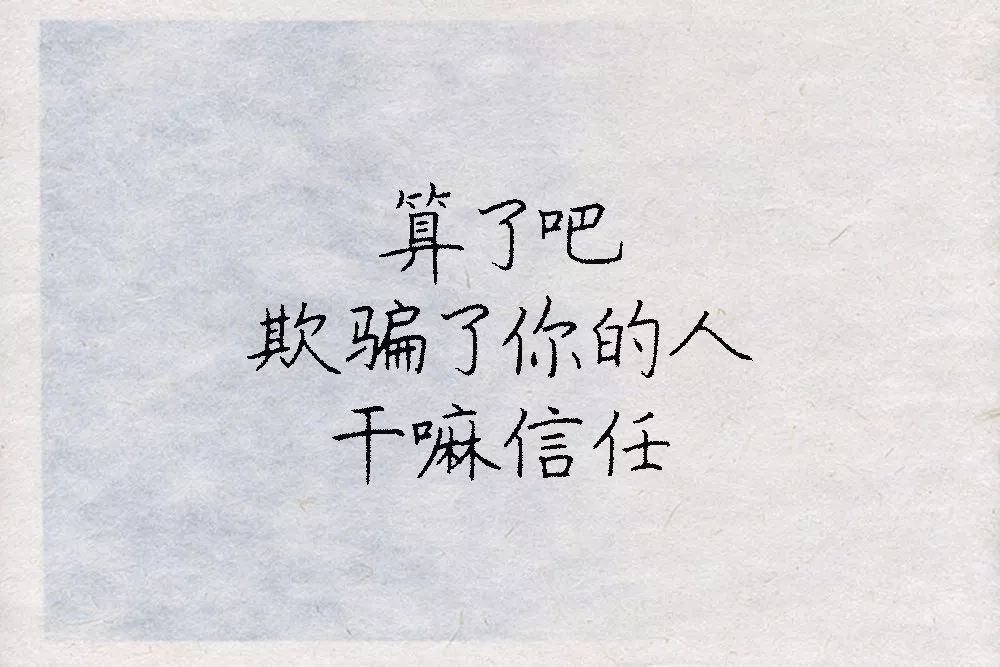 算了吧
欺骗了你的人
干嘛信任